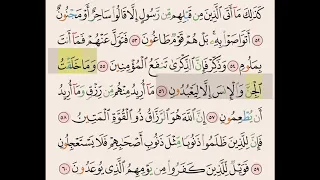 كَذَٰلِكَ مَا أَتَى الَّذِينَ مِن قَبْلِهِم مِّن رَّسُولٍ إِلَّا قَالُوا سَاحِرٌ أَوْ مَجْنُونٌ
٥٢ أَتَوَاصَوْا بِهِ ۚ بَلْ هُمْ قَوْمٌ طَاغُونَ ٥٣ فَتَوَلَّ عَنْهُمْ فَمَا أَنتَ
بِمَلُومٍ ٥٤ وَذَكِّرْ فَإِنَّ الذِّكْرَىٰ تَنفَعُ الْمُؤْمِنِينَ ٥٥ وَمَا خَلَقْتُ
الْجِنَّ وَالْإِنسَ إِلَّا لِيَعْبُدُونِ ٥٦ مَا أُرِيدُ مِنْهُم مِّن رِّزْقٍ وَمَا أُرِيدُ
أَن يُطْعِمُونِ ٥٧ إِنَّ اللَّهَ هُوَ الرَّزَّاقُ ذُو الْقُوَّةِ الْمَتِينُ ٥٨
فَإِنَّ لِلَّذِينَ ظَلَمُوا ذَنُوبًا مِّثْلَ ذَنُوبِ أَصْحَابِهِمْ فَلَا يَسْتَعْجِلُونِ
٥٩ فَوَيْلٌ لِّلَّذِينَ كَفَرُوا مِن يَوْمِهِمُ الَّذِي يُوعَدُونَ ٦٠